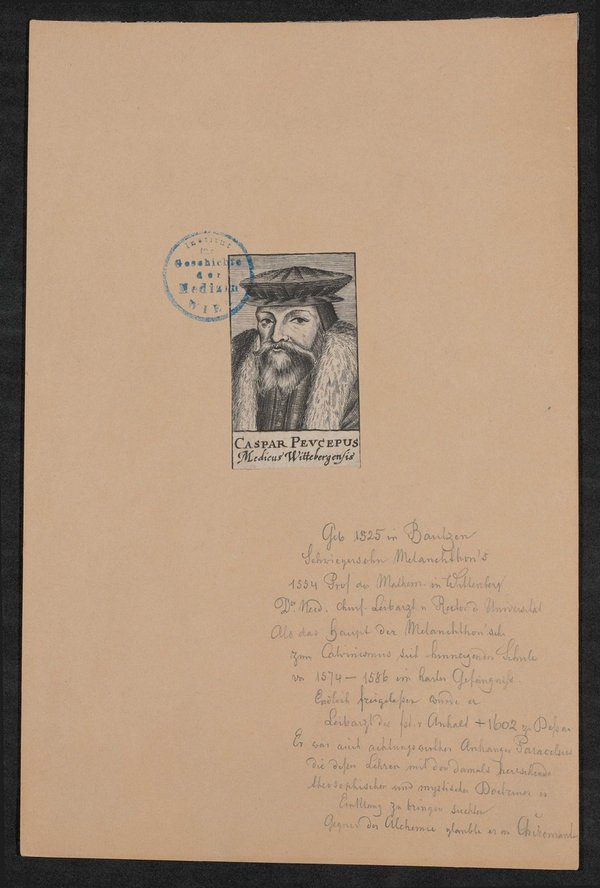 Institut
für
Geschichte
der
Medizin
WIE
CASPAR PEVCEPUS
Medicus Wittebergensis
Geb 1525 in Bautzen
Schwiegersohn Melanchthon's
1554 Prof der Mathem. in Wittenberg
Dr Med. Churf. Leibarzt u Rector d Universität
Als das Haupt der Melanchthon'sch
zum Calvinismus sich hinneigenden Schule
von 1574 – 1586 im harten Gefängniss.
Endlich freigelassen wurde er
Leibarzt des v Anhalt + 1602 zu Dessau
Er war auch achtungswerther Anhänger Paracelsus
die dessen Lehren mit den damals herrschenden
theosophischen und mystischen Doctrinen in
Einklang zu bringen suchte
Gegner der Alchemie glaubte er an Chiromantie